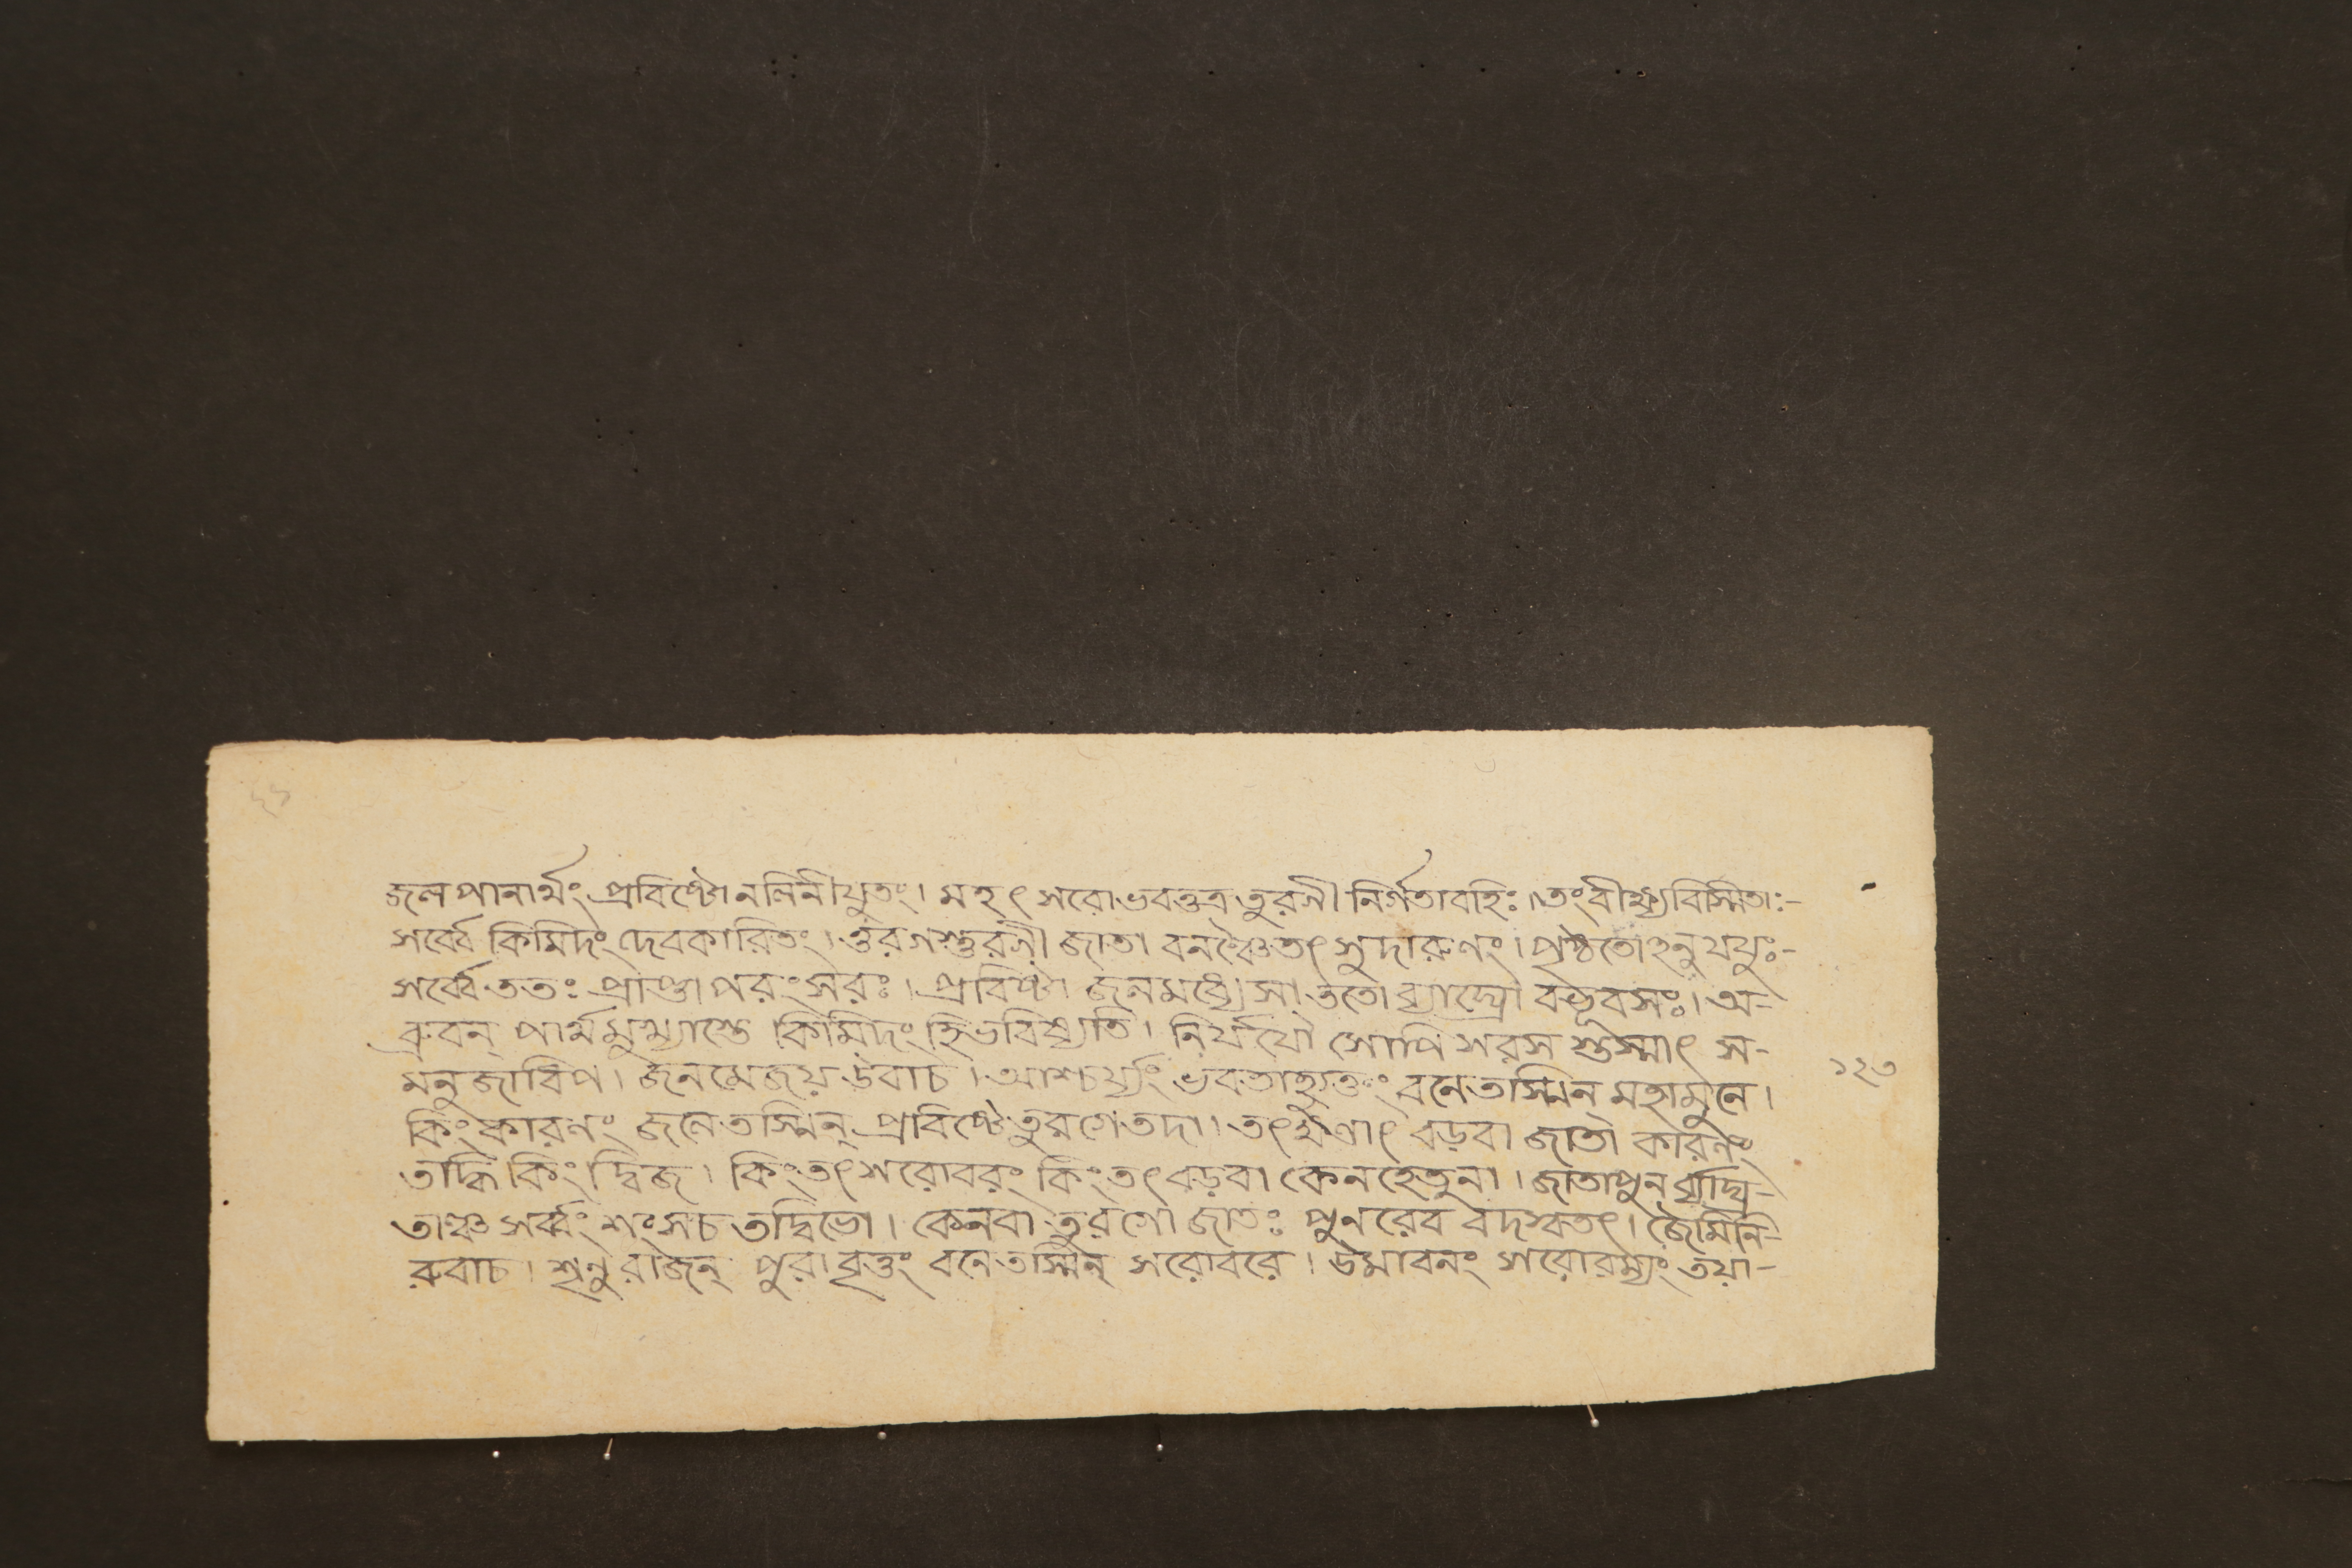 জলপানার্থং প্রবিষ্টো নলিনীযুতং। মহৎ সরোভবত্তত্র তুরগী নির্গতাবহিঃ। তংবীক্ষ্যবিস্মিতাঃ-
সর্ব্বে কিমিদং দেবকারিতং। তুরগস্তুরগী জাতা বনঞ্চৈতৎ সুদারুণং। পৃষ্ঠতোঽনুযযুঃ-
সর্ব্বে ততঃ প্রাপ্তা পরং সরঃ। প্রবিষ্টা জলমধ্যে সা ততো ব্যাঘ্রো বভূবসঃ। অ-
ব্রুবন্ পার্থমুখ্যাস্তে কিমিদং হি ভবিষ্যতি। নির্যযৌ সোপি সরস স্তস্মাৎ স-
মনুজাধিপ। জনমেজয় উবাচ। আশ্চর্য্যং ভবতাহ্যুক্তং বনে তস্মিন্ মহামুনে।
কিংকারণং জলে তস্মিন্ প্রবিষ্টে তুরগে তদা। তৎক্ষণাৎ বড়বা জাতা কারণং
তদ্ধি কিং দ্বিজ। কিং তৎ সরোবরং কিং তৎ বড়বা কেন হেতুনা। জাতা পুনর্ব্যাঘ্র-
তাঞ্চ সর্ব্বং শংসচ তদ্বিভো। কেনবা তুরগো জাতঃ পুনরেব বদস্বতৎ। জৈমিনি-
রুবাচ। শৃনু রাজন্ পুরাবৃত্তং বনে তস্মিন্ সরোবরে। উমাবনং সরোরম্যং তয়া-
১২৩